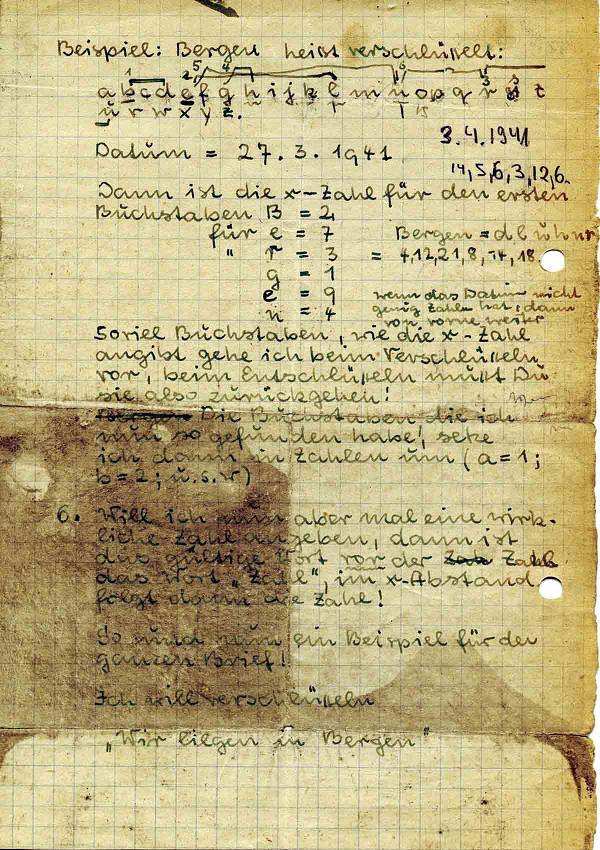 Beispiel: Bergen heißt verschlüßelt:
1 2 5 4 6 3
a b c d e f g h i j k l m n o p q r s t
u v w x y z.
3.4.1941
Datum = 27.3.1941
14,5,6,3,12,6.
Dann ist die x-Zahl für den ersten
Buchstaben B = 2
für e = 7 Bergen = d l u h n r
" r = 3 = 4,12,21,8,14,18
g = 1
e = 9 wenn das Datum nicht
genug Zahlen hat, dann
n = 4 von vorne weiter
Soviel Buchstaben, wie die x-Zahl
angibt gehe ich beim Verschlüßeln
vor, beim Entschlüßeln mußt Du
sie also zurückgehen!
Die Buchstaben die ich
nun so gefunden habe, setze
ich dann in Zahlen um (a=1;
b=2; u.s.w)
6. Will ich nun aber mal eine wirk-
liche Zahl angeben, dann ist
das gültige Wort vor der Zahl
das Wort „Zahl", im x-Abstand
folgt dann die Zahl!
So und nun ein Beispiel für den
ganzen Brief!
Ich will verschlüßeln
„Wir liegen in Bergen"